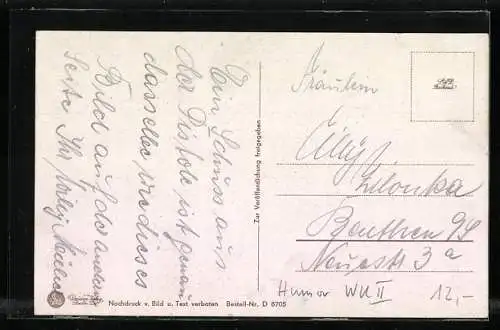 Ein Schuss aus
der Pistole ist genau
dasselbe wie dieses
Bild auf der anderen
Seite Ihr Willy
Zur Veröffentlichung freigegeben
Fräulein
Zilonka
Beuthen O/S
Neuestr 3a
Nachdruck v. Bild u. Text verboten Bestell-Nr. D 6705
Humor WK II 12,-